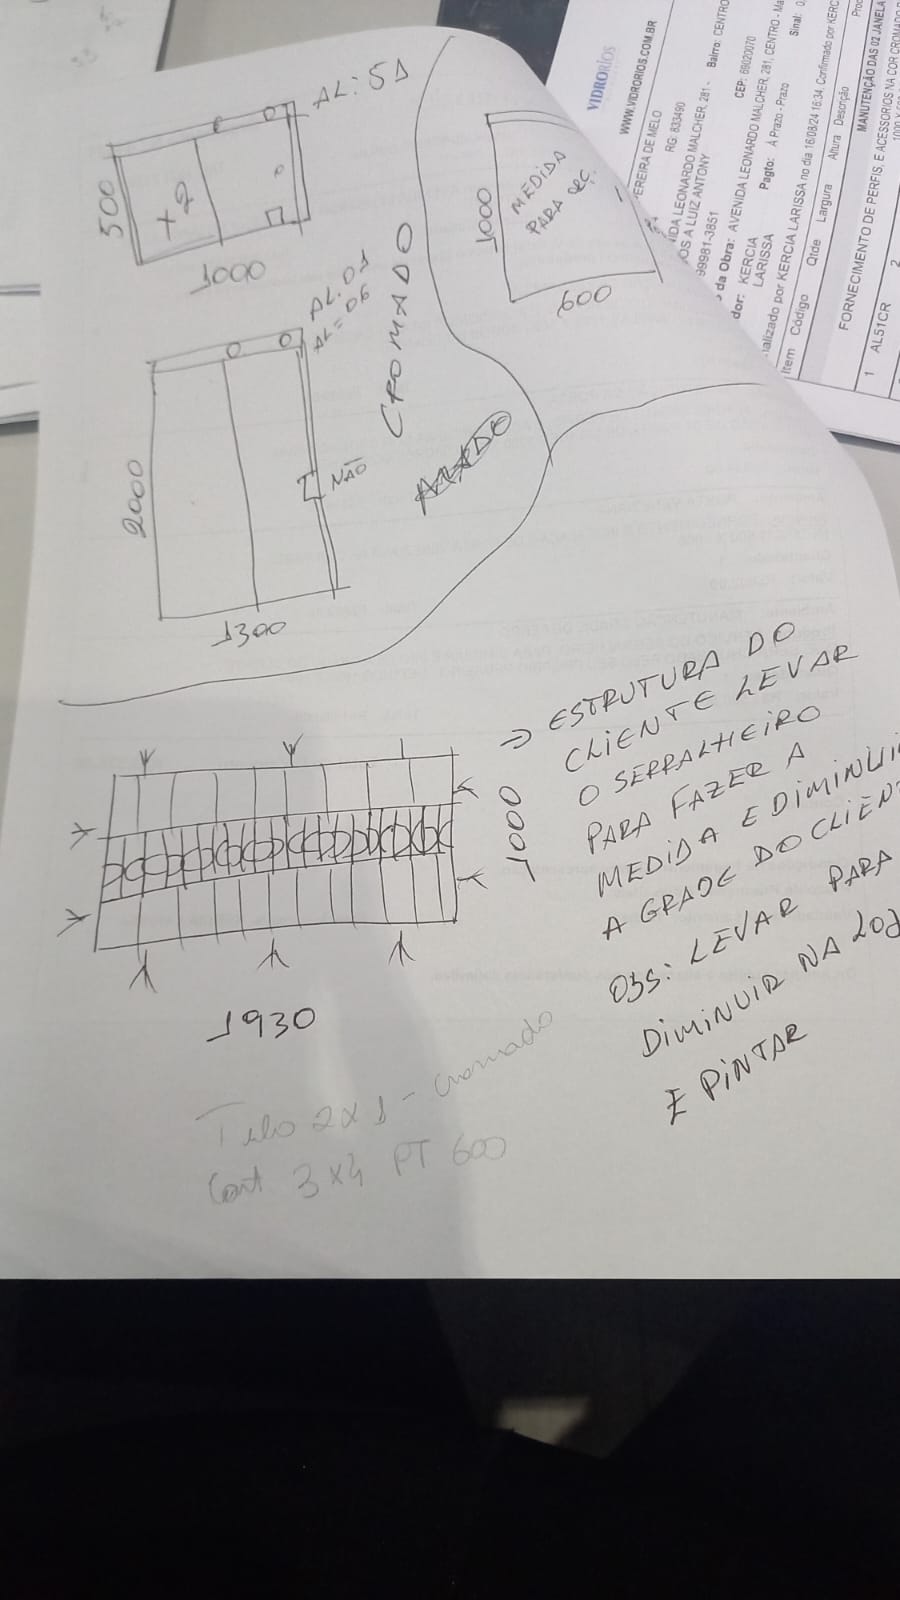 AL: 51
500
+2
1000
AL: 01
AL= 06
CROMADO
2000
NÃO
1300
1000
MEDIDA
PARA
600
VIDRORIOS
WWW.VIDRORIOS.COM.BR
EREIRA DE MELO
RG: 833490
IDA LEONARDO MALCHER, 281 - Bairro: CENTRO
OS A LUIZ ANTONY
99981-3851
da Obra: AVENIDA LEONARDO MALCHER, 281, CENTRO - Ma
CEP: 69020070
dor: KERCIA LARISSA
Pagto: A Prazo - Prazo
Sinal: 0,
ializado por KERCIA LARISSA no dia 16/08/24 16:34, Confirmado por KERC
Item Código Qtde Largura Altura Descrição
FORNECIMENTO DE PERFIS, E ACESSORIOS NA COR CROMADO
MANUTENÇÃO DAS 02 JANELA
1 AL51CR 2
⇒ ESTRUTURA DO
CLIENTE LEVAR
O SERRALHEIRO
PARA FAZER A
MEDIDA E DIMINUI
A GRADE DO CLIEN
OBS: LEVAR PARA
DIMINUIR NA LOJ
E PINTAR
1000
1930
2x1 - cromado
PT 600